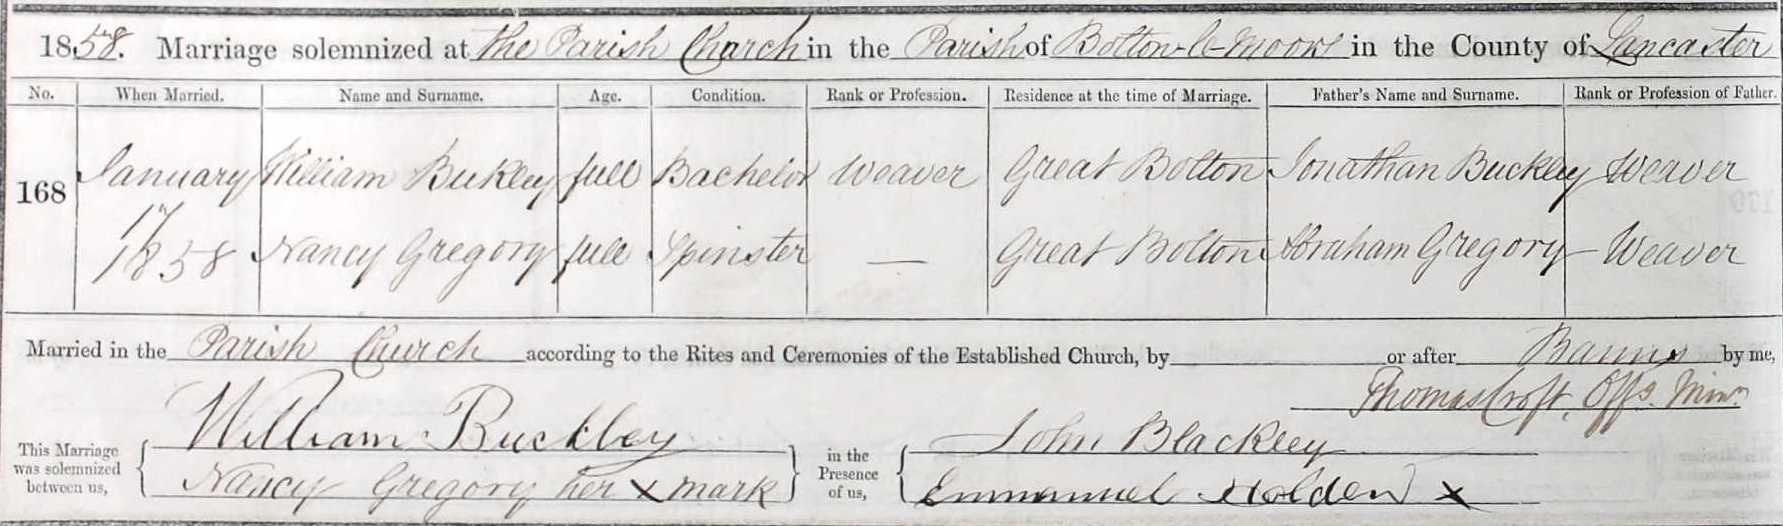 1858. Marriage solemnized at the Parish Church in the Parish of Bolton-le-Moors in the County of Lancaster
No. When Married. Name and Surname. Age. Condition. Rank or Profession. Residence at the time of Marriage. Father's Name and Surname. Rank or Profession of Father.
168 January 17 1858 William Buckley full Bachelor Weaver Great Bolton Jonathan Buckley Weaver
Nancy Gregory full Spinster — Great Bolton Abraham Gregory Weaver
Married in the Parish Church according to the Rites and Ceremonies of the Established Church, by or after Banns by me,
Thomas Croft, Offg. Minr.
This Marriage was solemnized between us, William Buckley in the Presence of us, John Blackley
Nancy Gregory her x mark Emmanuel Holden x